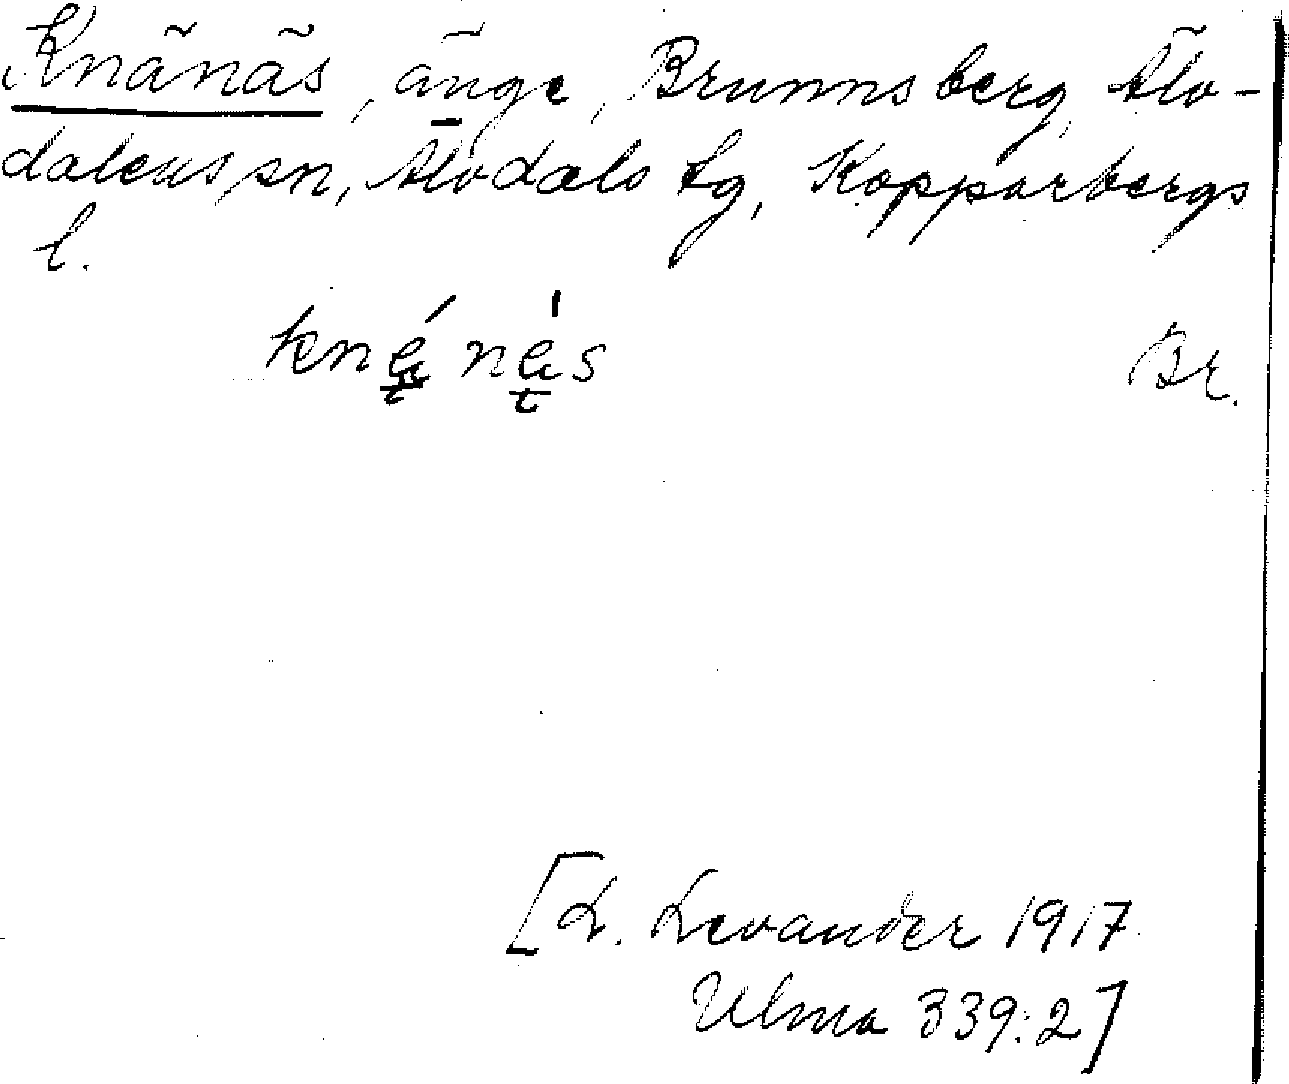 Knänäs, änge, Brunnsberg, Älv-
dalens sn, Älvdals tg, Kopparbergs
l.
Br.
[L. Levander 1917
Ulma 339:2]